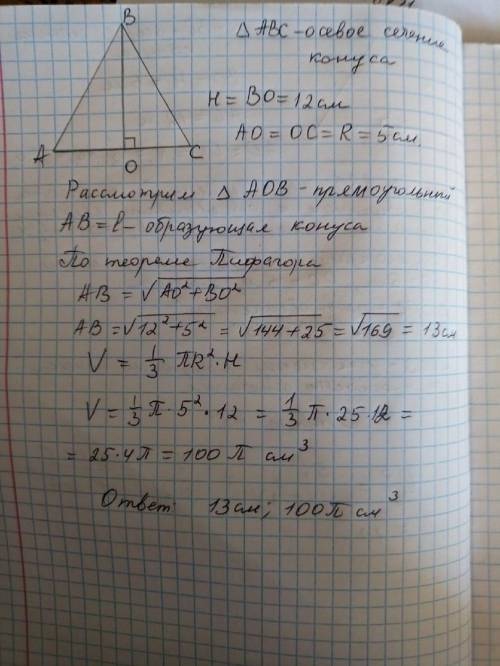 B
A
O
C
Δ ABC - осевое сечение
конуса
H = BO = 12 см
AO = OC = R = 5 см.
Рассмотрим Δ AOB - прямоугольный
AB = l - образующая конуса
По теореме Пифагора
AB = √(AO² + BO²)
AB = √(12² + 5²) = √(144 + 25) = √169 = 13 см
V = 1/3 πR² · H
V = 1/3 π · 5² · 12 = 1/3 π · 25 · 12 =
= 25 · 4π = 100 π см³
Ответ: 13 см; 100π см³